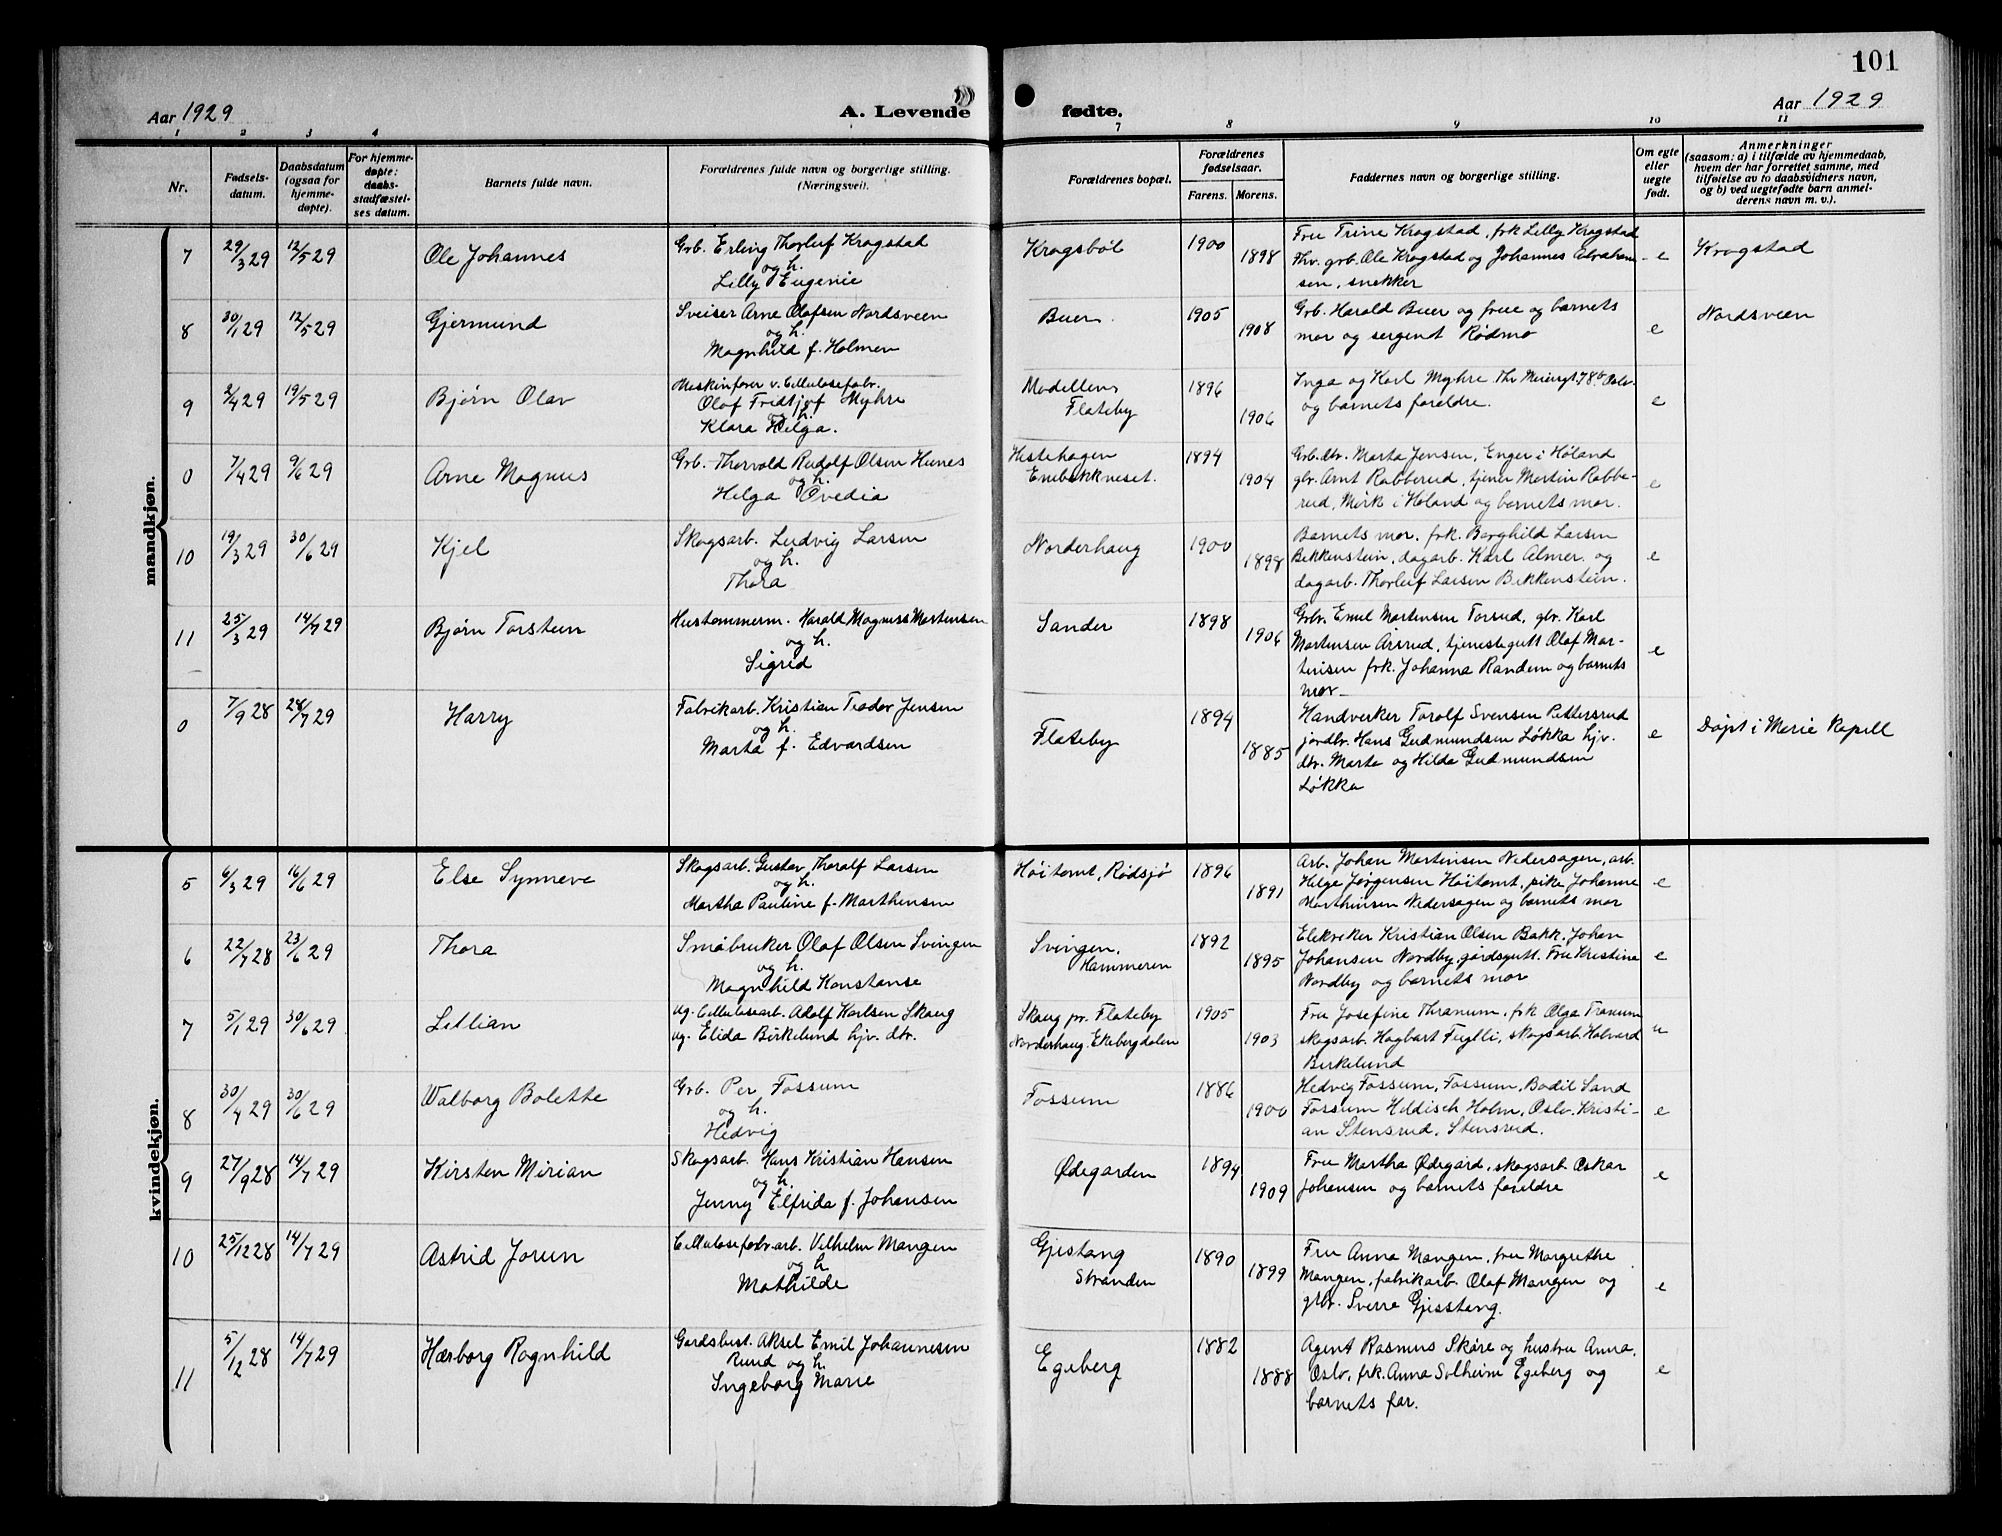 101
Aar 1929
A. Levende
fødte.
Aar 1929
1 2 3 4 7 8 9 10 11
Nr.
Fødsels-
datum.
Daabsdatum
(ogsaa for
hjemme-
døpte).
For hjemme-
døpte:
daabs-
stadfæstel-
ses datum.
Barnets fulde navn.
Forældrenes fulde navn og borgerlige stilling.
(Næringsvei).
Forældrenes bopæl.
Forældrenes
fødselsaar.
Farens. Morens.
Faddernes navn og borgerlige stilling.
Om egte
eller
uegte
født.
Anmerkninger
(saasom: a) i tilfælde av hjemmedaab,
hvem der har forrettet samme, med
tilføielse av to daabsvidners navn,
og b) ved uegtefødte barn anmel-
derens navn m. v.).
mandkjøn.
7 29/3 29 12/5 29 Ole Johannes
Grb. Erling Thorleif Krogstad
og h.
Lilly Eugenie
Krogsbøl 1900 1898
Fru Trine Krogstad, frk Lilly Krogstad
Thv. grb. Ole Krogstad og Johannes Abraham
sen, snekker
e Krogstad
8 30/1 29 12/5 29 Gjermund
Sveiser Arne Olafsen Nordsveen
og h.
Magnhild f. Holmen
Buer 1905 1908
Grb. Harald Buer og frue og barnets
mor og sergent Rødmo
e Nordsveen
9 2/4 29 19/5 29 Bjørn Olav
Maskinfører v. Cellulosefabr.
Olaf Fridtjof Myhre
og h.
Klara Helga.
Modellens
Flateby
1896 1906
Inga og Karl Myhre Thv Meiergt 78b Oslo.
og barnets foreldre.
e
0 7/4 29 9/6 29 Arne Magnus
Grb. Thorvald Rudolf Olsen Hunes
og h.
Helga Ovedia
Histehagen
Enebakkneset.
1894 1904
Grb.dtr. Marta Jensen, Enger i Høland
gbr. Arnt Rabberud, tjener Martin Rabbe-
rud, Mørk i Høland og barnets mor.
e
10 19/3 29 30/6 29 Kjel
Skogsarb. Ludvig Larsen
og h.
Thora
Norderhaug 1900 1898
Barnets mor, frk. Borghild Larsen
Bekkenstein, dagarb. Karl Almer og
dagarb. Thorleif Larsen Bekkenstein.
e
11 25/3 29 14/7 29 Bjørn Torstein
Hustømmerm. Harald Magnus Martensen
og h.
Sigrid
Sander 1898 1906
Grbr. Emil Martensen Torsud, gbr. Karl
Martensen Arsrud, tjenestegutt Olaf Mar-
tinsen frk. Johanna Randem og barnets
mor
e
0 7/9 28 28/7 29 Harry
Fabrikarb. Kristian Teodor Jensen
og h.
Marta f. Edvardsen
Flateby 1894 1885
Handverker Torolf Svensen Pettersrud
jordbr. Hans Gudmundsen Løkka hjv.
dtr. Marta og Hilda Gudmundsen
Løkka
e Døpt i Marie Kapell
kvindekjøn.
5 6/3 29 16/6 29 Else Synneve
Skogsarb. Gustav Thoralf Larsen
og h.
Martha Pauline f. Marthinsen
Høitomt, Rødsjø 1896 1891
Arb. Johan Martinsen Nedersagen, arb.
Helge Jørgensen Høitomt, pike Johanne
Marthinsen Nedersagen og barnets mor
e
6 22/7 28 23/6 29 Thora
Småbruker Olaf Olsen Svingen
og h.
Magnhild Konstanse
Svingen,
Hammeren
1892 1895
Elekriker Kristian Olsen Bakk. Johan
Johansen Nordby, gårdsgutt. Fru Kristine
Nordby og barnets mor
e
7 5/1 29 30/6 29 Lillian
Ug. Cellulosearb. Adolf Karlsen Skaug
ug. Elida Birkelund hjv. dtr.
Skaug pr. Flateby
Norderhaug. Ekebergdalen
1905 1903
Fru Josefine Thranum, frk Olga Tranum
skogsarb. Hagbart Fuglli, skogsarb. Halvard
Birkelund
u
8 30/4 29 30/6 29 Walborg Bolette
Grb. Per Fossum
og h.
Hedvig
Fossum 1886 1900
Hedvig Fossum, Fossum, Bodil Sand
Fossum Holm, Oslo. Kristi-
an Stensrud, Stensrud.
e
9 27/9 28 14/7 29 Kirsten Mirian
Skogsarb. Hans Kristian Hansen
og h.
Jenny Elfrida f. Johansen
Ødegarden 1894 1909
Fru Martha Ødegård, skogsarb. Oskar
Johansen og barnets foreldre
e
10 25/12 28 14/7 29 Astrid Jorun
Cellulosefabr.arb. Vilhelm Mangen
og h.
Mathilde
Gjestang
Stranden
1890 1899
Fru Anna Mangen, fru Margrethe
Mangen, fabrikarb. Olaf Mangen og
gbr. Sverre Gjesstang.
e
11 5/12 28 14/7 29 Hærborg Ragnhild
Gardsbest. Aksel Emil Johannesen
Rund og h.
Ingeborg Marie
Egeberg 1882 1888
Agent Rasmus Skøre og hustru Anna,
Oslo, frk. Anna Solheim Egeberg og
barnets far.
e